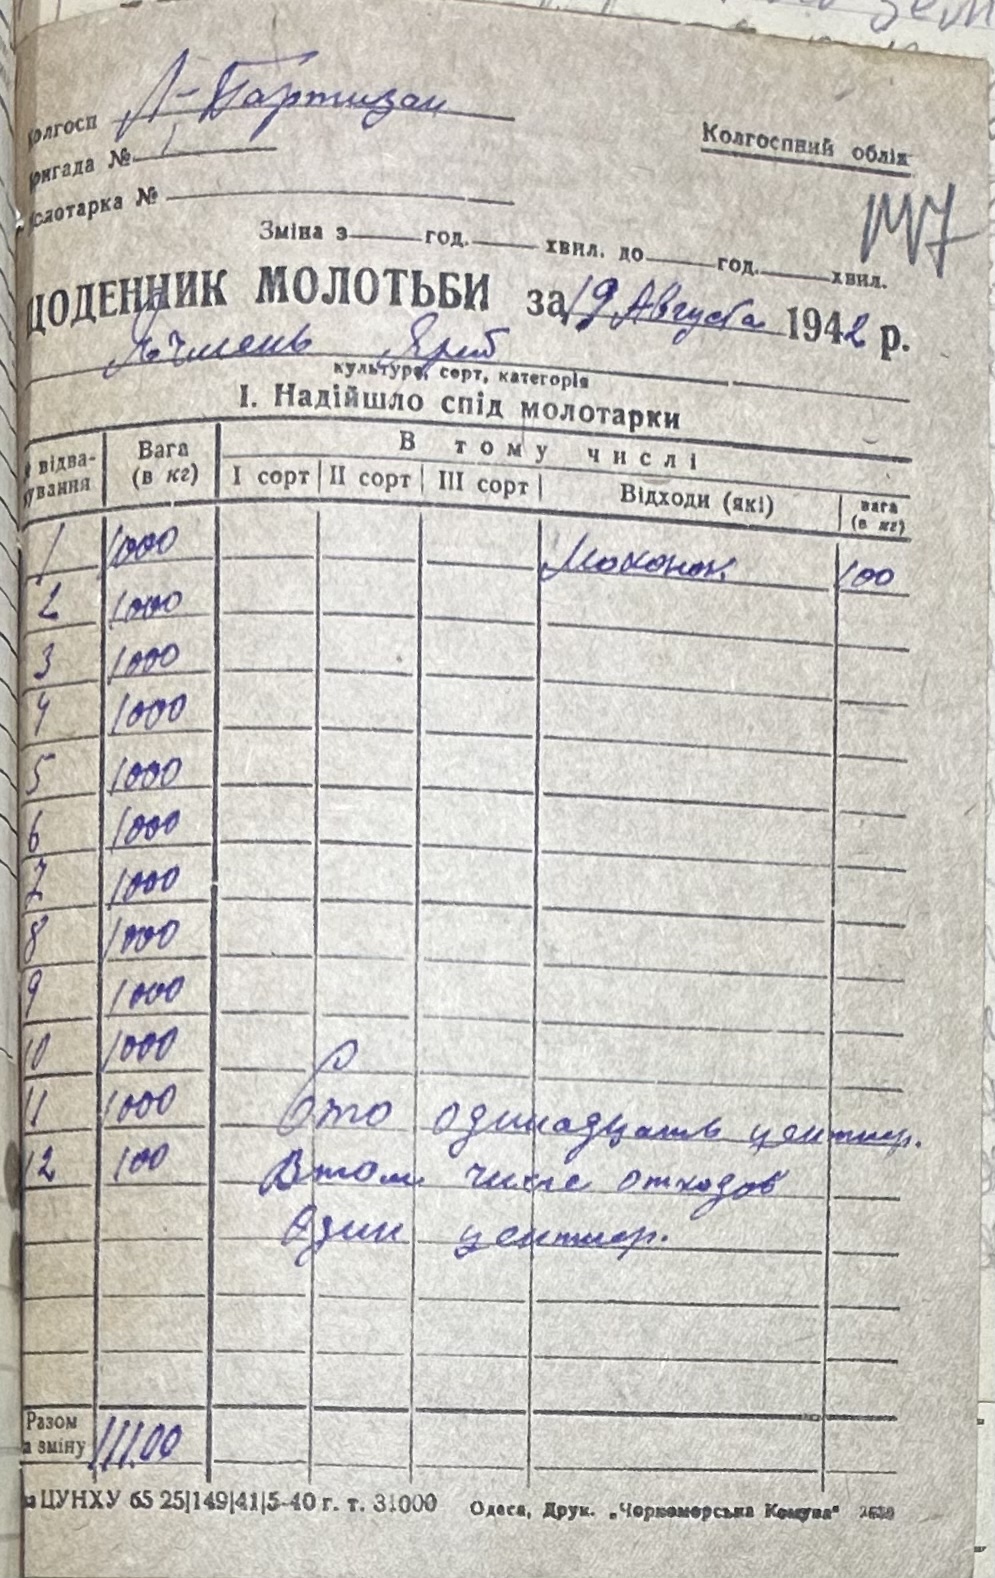 Колгосп Л-Партизан
Колгоспний облік
Бригада № 1
Молотарка №
Зміна з год. хвил. до год. хвил.
ЩОДЕННИК МОЛОТЬБИ за 19 Августа 1942 р.
Ячмень Яров
культура, сорт, категорія
І. Надійшло спід молотарки
№ відва-
жування
Вага
(в кг)
В тому числі
І сорт ІІ сорт ІІІ сорт Відходи (які) вага
(в кг)
1 1000 100
2 1000
3 1000
4 1000
5 1000
6 1000
7 1000
8 1000
9 1000
10 1000
11 1000 Сто одинадцать центнер.
12 100 В том числе отходов
один центнер.
Разом
за зміну 111.00
ЦУНХУ 65 25|149|41|5-40 г. т. 31000 Одеса, Друк. „Чорноморська Комуна“